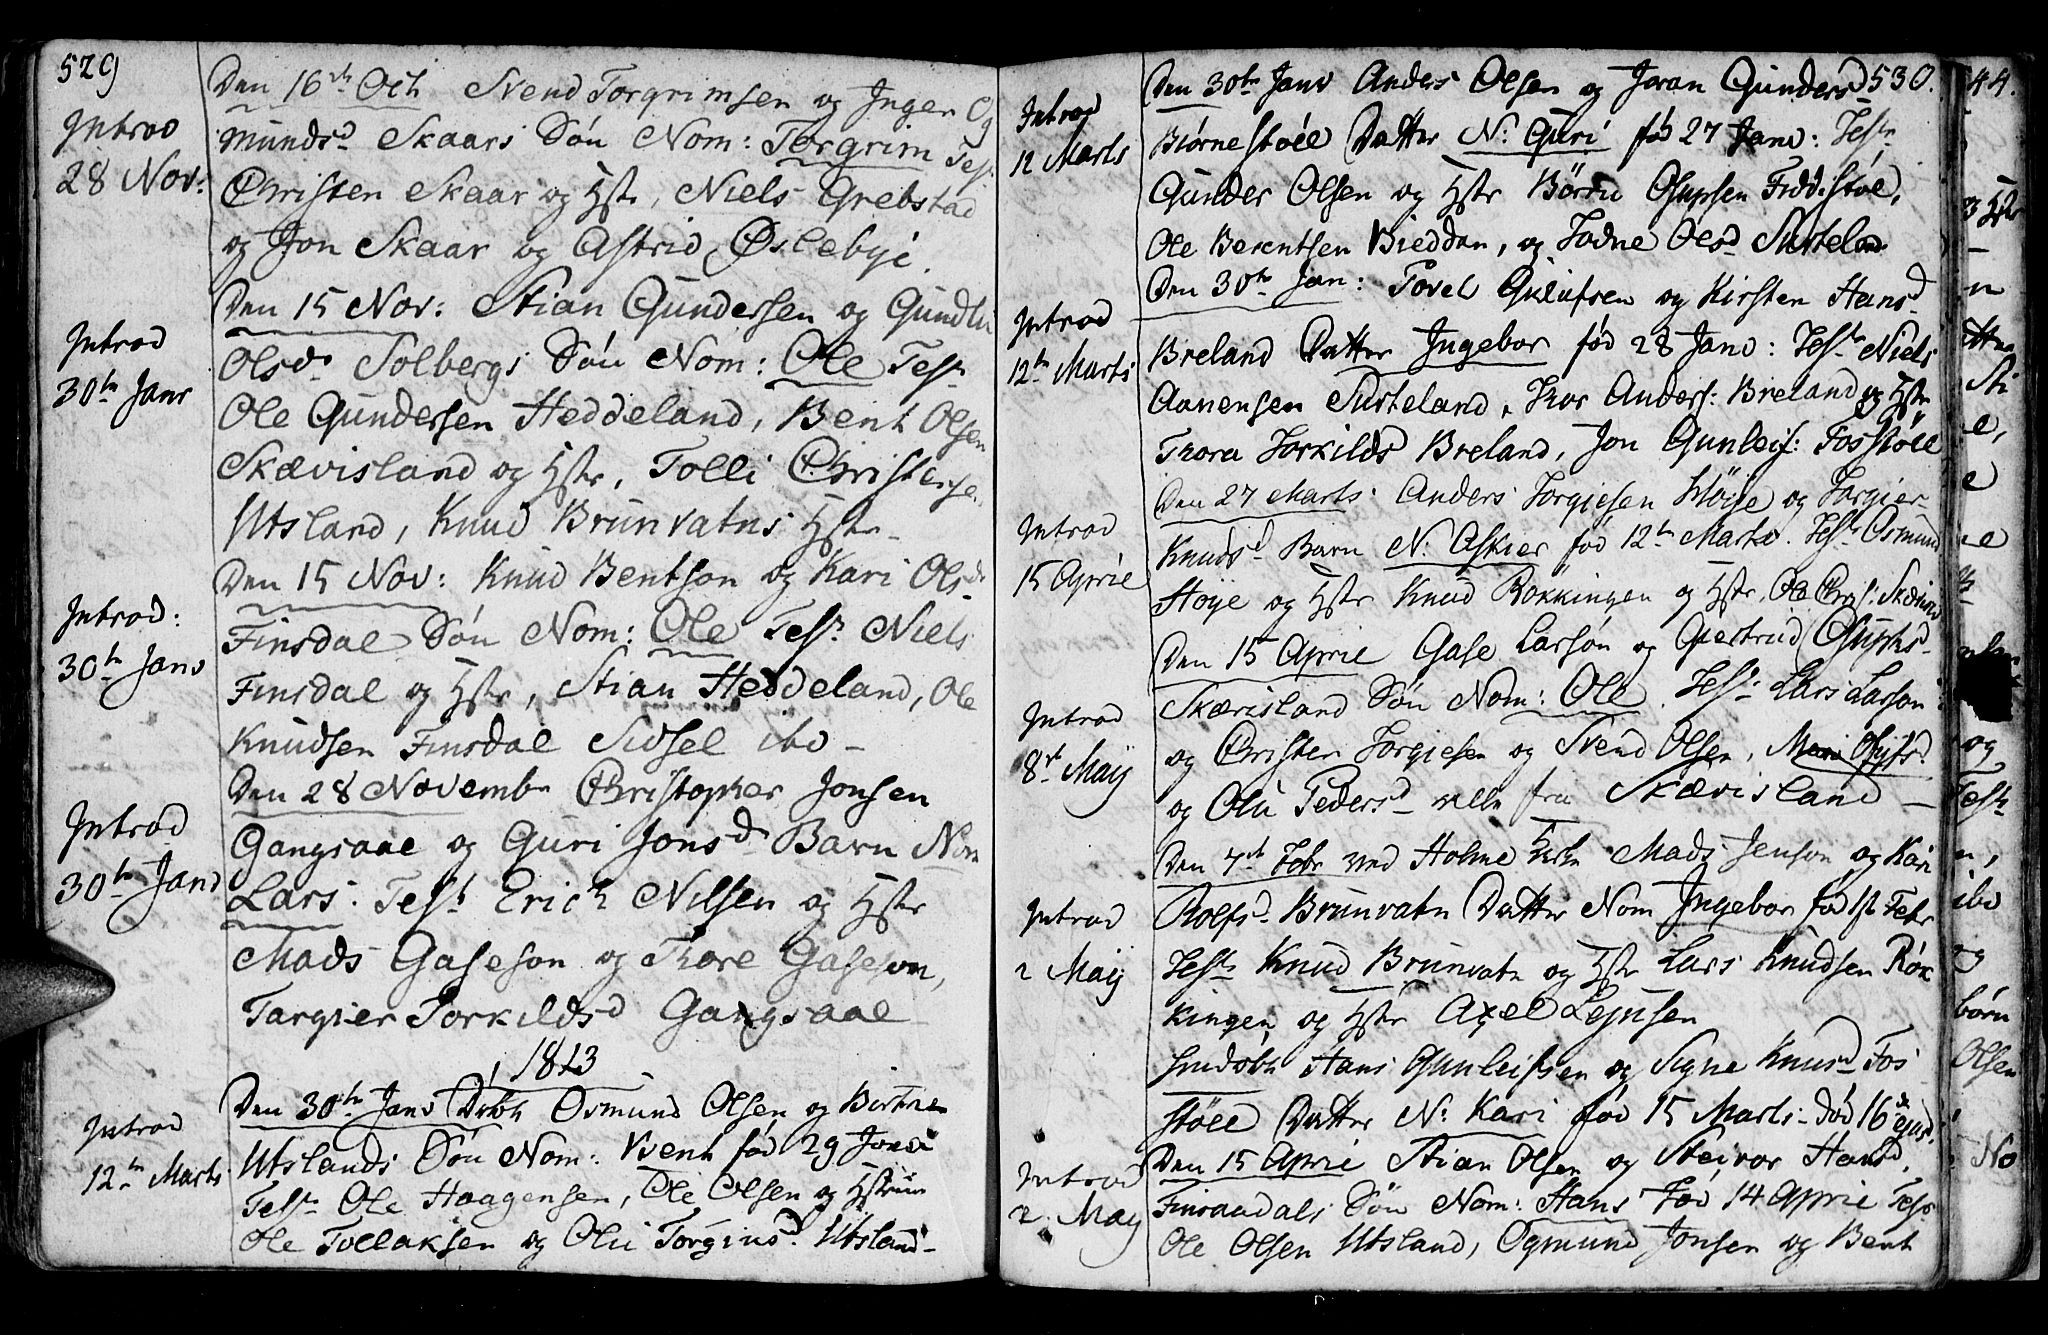 529
Introd
28 Nov:
Den 16de Octi Svend Torgrimsen og Inger Og
munds d Skaars Søn Nom: Torgrim Test
Christen Skaar og Hstr, Niels Grebstad
og Jon Skaar og Astrid Øslebye.
Introd
30te Janr
Den 15 Nov: Stian Gundersen og Gundli
Olsdr Solbergs Søn Nom: Ole Testr
Ole Gundersen Heddeland, Bent Olsen
Skævisland og Hstr, Tolli Christense.
Utsland, Knud Brunvatns Hstr
Introd:
30te Janv
Den 15 Nov: Knud Bentson og Kari Olsdr
Finsdal Søn Nom: Ole Testr Niels
Finsdal og Hstr, Stian Heddeland, Ole
Knudsen Finsdal Sidsel ibd -
Introd
30te Janv
Den 28 Novembr Christopher Jonsen
Gangsaae og Guri Jonsd Barn Nom
Lars. Test Erich Nilsen og Hstr
Mads Gaseson og Thore Gaseson,
Targier Torkildsd Gangsaae
1813
Introd
12te Marts
Den 30te Janv Døbt Osmund Olsen og Birthe
Utslands Søn Nom: Bent fød 29 Janv
Testr Ole Haagensen, Ole Olsen og Hstrue
Ole Tollaksen og Oli Torgiusd. Utsland -
530.
Introd
12 Marts
Den 30te Janv Anders Olsen og Joran Gundersd
Biørnestøll Datter N: Guri fød 27 Janv: Testr
Gunder Olsen og Hstr Børru Osupsen Fiddistøl,
Ole Berentsen Bieddan, og Todne Olsd Surteland
Introd
12te Marts
Den 30te Jan: Tovel Gulufsen og Kirsten Hansd
Breland Datter Ingebor fød 28 Janv: Testr Niels
Aanensen Surteland, Thor Anders: Breland og Hstr
Thora Torkildsd Breland, Jon Gunleifs: Fosstøll
Introd
15 April
Den 27 Marts. Anders Torgiesen Høye og Torgier
Knudsd Barn N. Askier fød 12te Marts. Testr Osmund
Høye og Hstr Knud Røkkingen og Hstr, Ole Chris: Skævisld
Introd
8de Maij
Den 15 April Gase Larsøn og Giertrud Osuphsd
Skævisland Søn Nom: Ole. Testr Lars Larson
og Christen Torgiesen og Svend Olsen, Osufsd
og Olu Pedersd alle fra Skævisland -
Introd
2 Maij
Den 7de Febr ved Holme Kirke Mads Jenson og Kari
Rolfsd Brunvatn Datter Nom Ingebor fød 1st Febr
Testr Knud Brunvatn og Hstr Lars Knudsen Røk
kingen og Hstr Axel Lejusen
Hans Gunleifsen og Signe Knusd Fos
støll Datter N: Kari fød 15 Marts - død 16de ejusd.
Introd
2. May
Den 15 April Stian Olsen og Steivor Hansd.
Finsaadals Søn Nom: Hans Fød 14 April Testr
Ole Olsen Utsland, Ogmund Jonsen og Bent
44.
3 Hstr
n
Sti
e,
e
og
Testr
n,
ibd
og
børn
Olsen
No